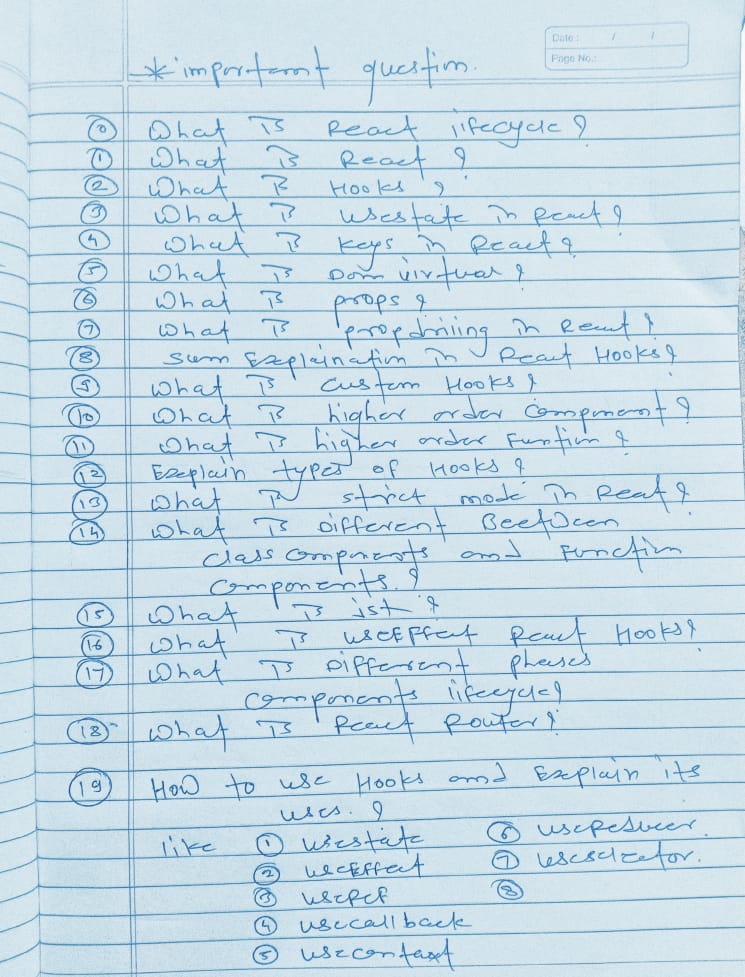 Date : / /
Page No.:
* important question.
0 What is React lifecycle ?
1 What is React ?
2 What is Hooks ?
3 What is usestate in React ?
4 What is keys in React ?
5 What is Dom virtual ?
6 What is props ?
7 What is propdrilling in React ?
8 sum Explaination in React Hooks ?
9 What is custom Hooks ?
10 What is higher order component ?
11 What is higher order Function ?
12 Explain types of Hooks ?
13 What is strict mode in React ?
14 What is Different Between
class components and Function
components. ?
15 What is jst ?
16 What is useEffect React Hooks ?
17 What is Different phases
components lifecycle ?
18 What is React Router ?
19 How to use Hooks and Explain its
uses. ?
like 1 usestate 6 useReducer.
2 useEffect 7 useselector.
3 useRef 8
4 usecallback
5 usecontext